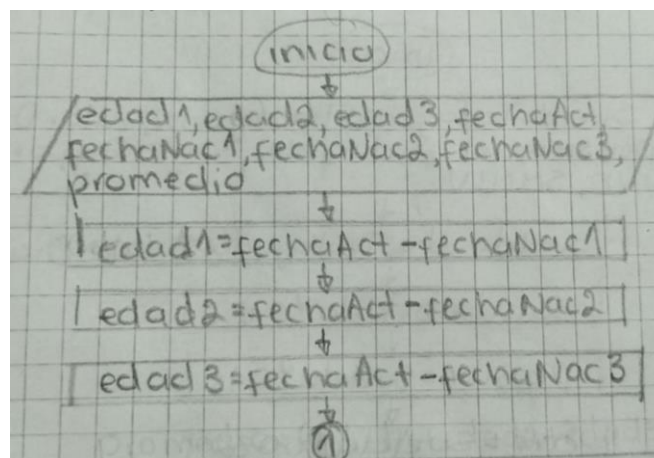 inicio
edad1, edad2, edad3, fechaAct,
fechaNac1, fechaNac2, fechaNac3,
promedio
edad1=fechaAct-fechaNac1
edad2=fechaAct-fechaNac2
edad3=fechaAct-fechaNac3
1